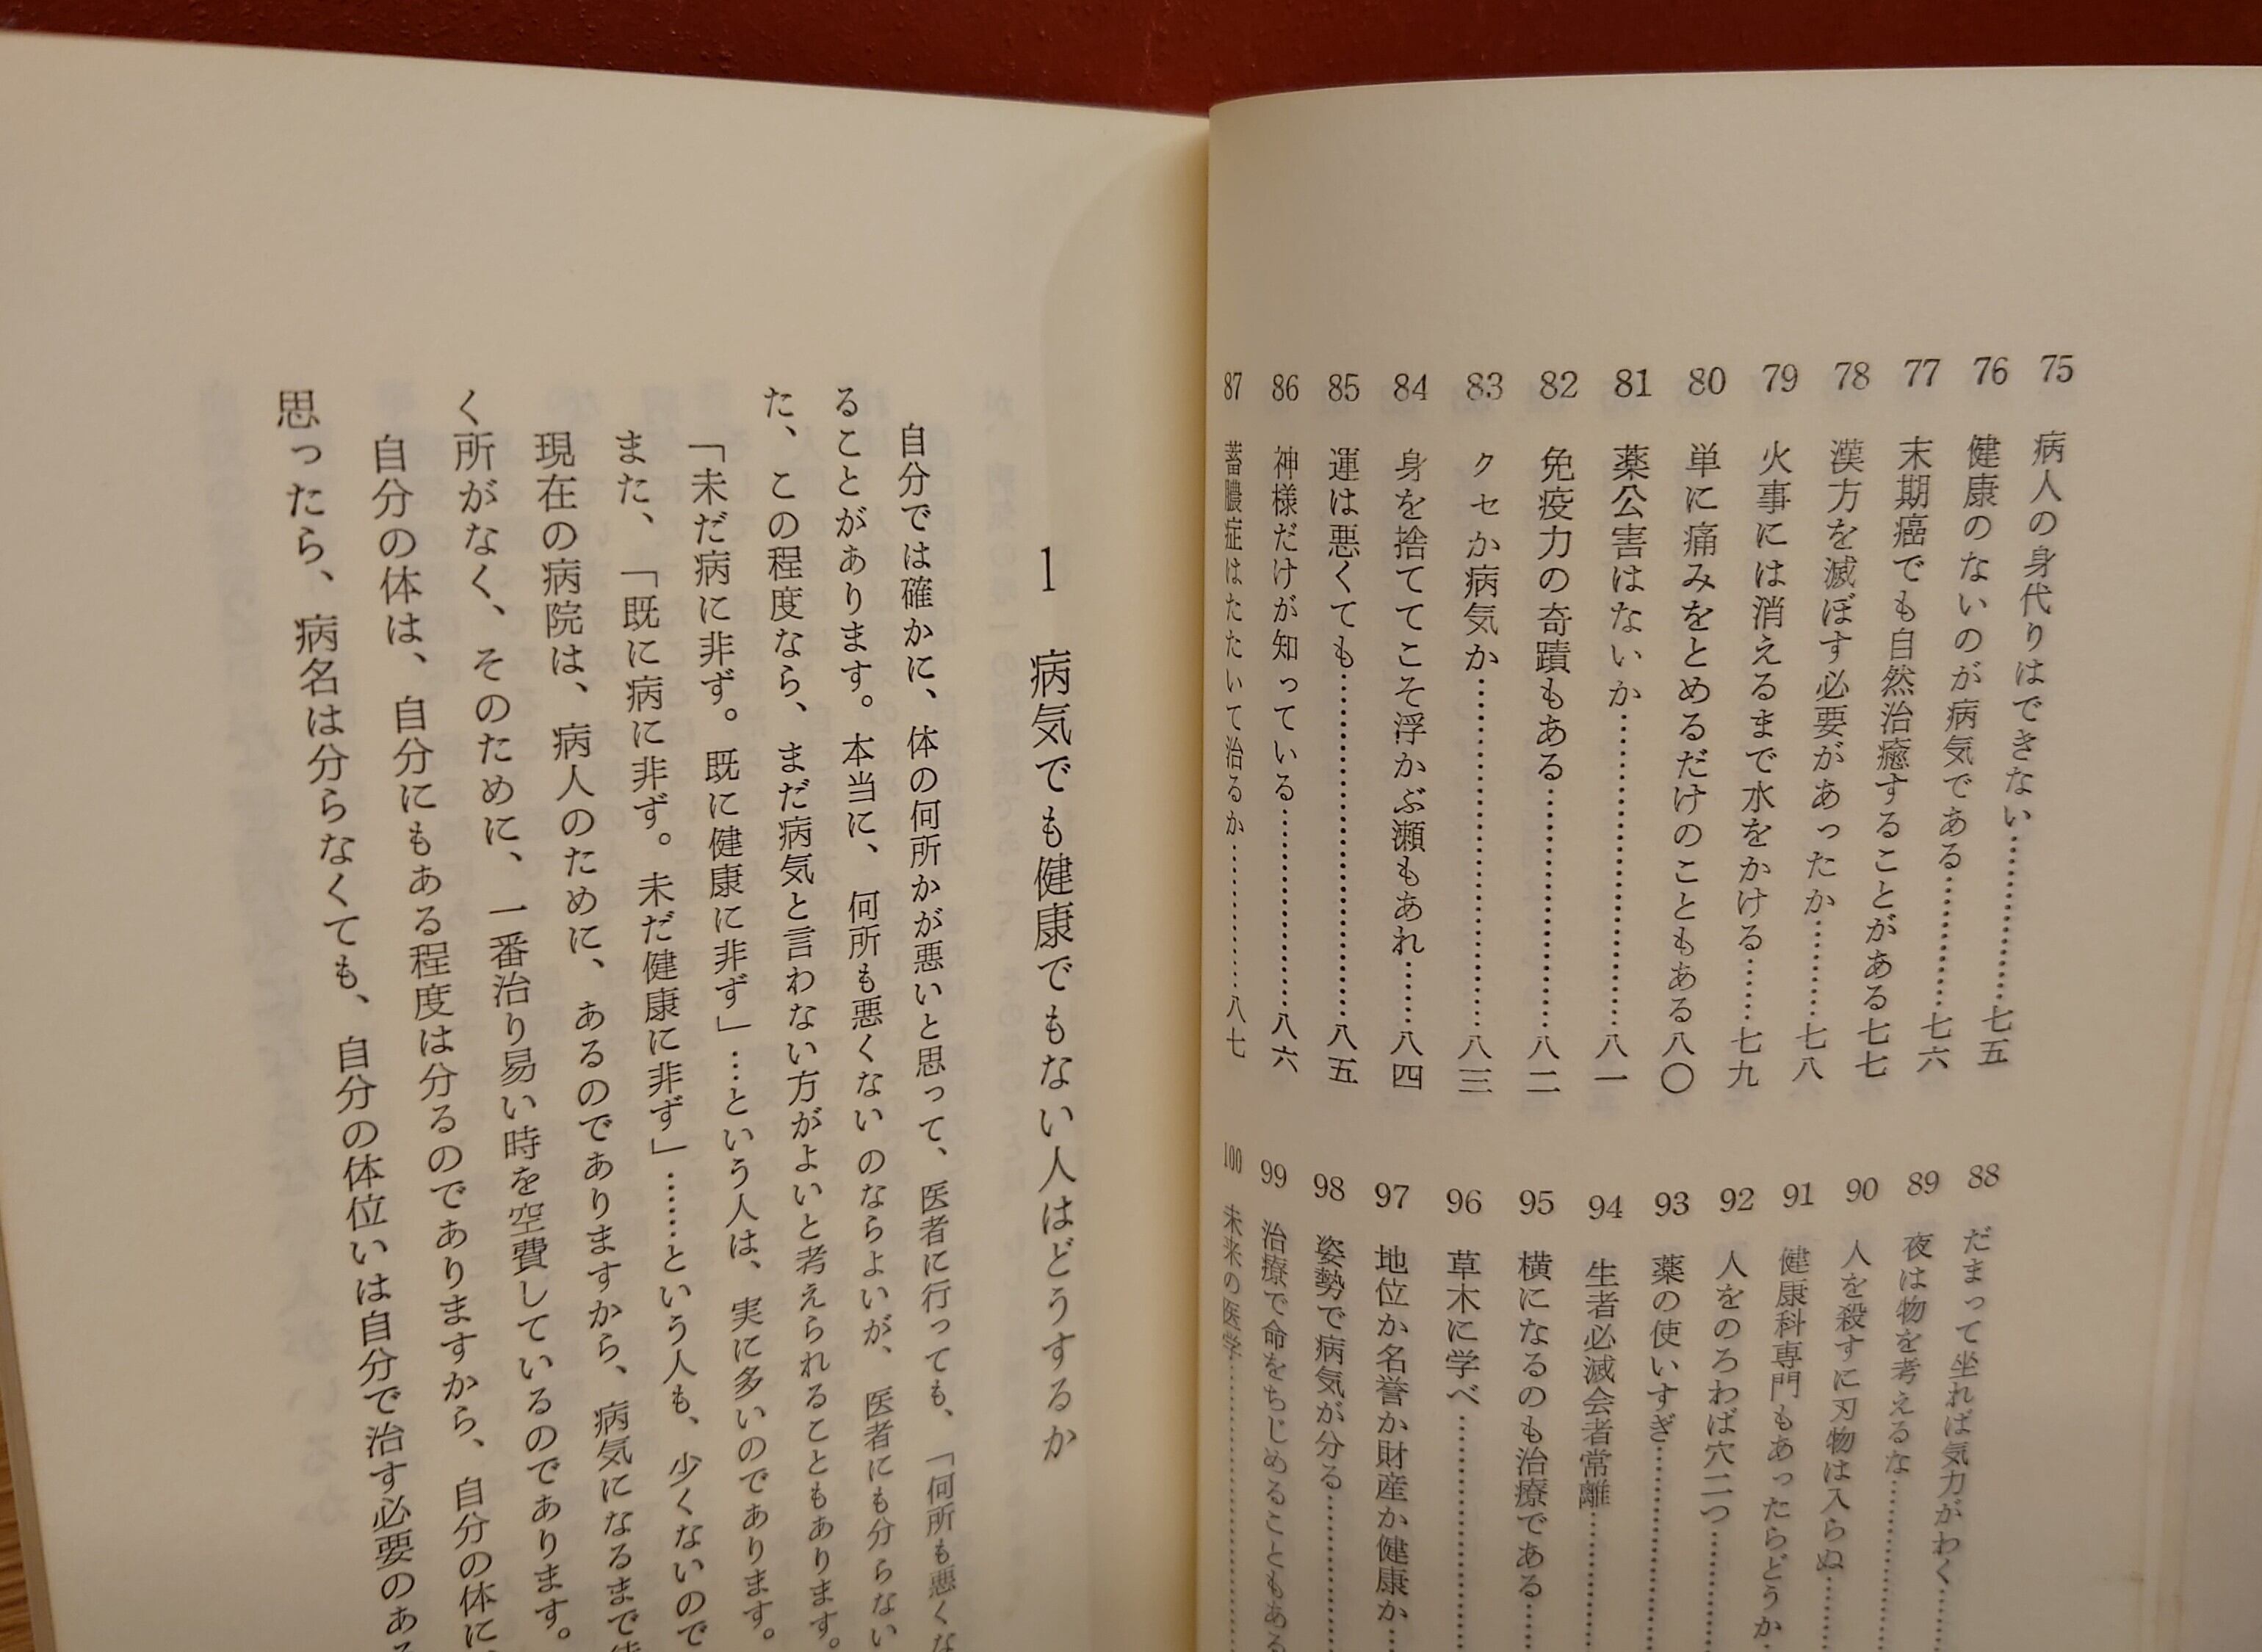 75 病人の身代りはできない…………七五
76 健康のないのが病気である…………七六
77 末期癌でも自然治癒することがある七七
78 漢方を滅ぼす必要があったか………七八
79 火事には消えるまで水をかける……七九
80 単に痛みをとめるだけのこともある八〇
81 薬公害はないか…………………八一
82 免疫力の奇蹟もある………………八二
83 クセか病気か……………………八三
84 身を捨ててこそ浮かぶ瀬もあれ……八四
85 運は悪くても……………………八五
86 神様だけが知っている……………八六
87 蓄膿症はたたいて治るか…………八七
88 だまって坐れば気力がわく……
89 夜は物を考えるな…………
90 人を殺すに刃物は入らぬ……
91 健康科専門もあったらどうか…
92 人をのろわば穴二つ………
93 薬の使いすぎ…………
94 生者必滅会者常離………
95 横になるのも治療である……
96 草木に学べ……………
97 地位か名誉か財産か健康か…
98 姿勢で病気が分る………
99 治療で命をちじめることもある
100 未来の医学……………
1 病気でも健康でもない人はどうするか
自分では確かに、体の何所かが悪いと思って、医者に行っても、「何所も悪くな
ることがあります。本当に、何所も悪くないのならよいが、医者にも分らない
た、この程度なら、まだ病気と言わない方がよいと考えられることもあります。
「未だ病に非ず。既に健康に非ず」…という人は、実に多いのであります。
また、「既に病に非ず。未だ健康に非ず」……という人も、少くないので
現在の病院は、病人のために、あるのでありますから、病気になるまで
く所がなく、そのために、一番治り易い時を空費しているのであります。
自分の体は、自分にもある程度は分るのでありますから、自分の体に
思ったら、病名は分らなくても、自分の体位いは自分で治す必要のあ